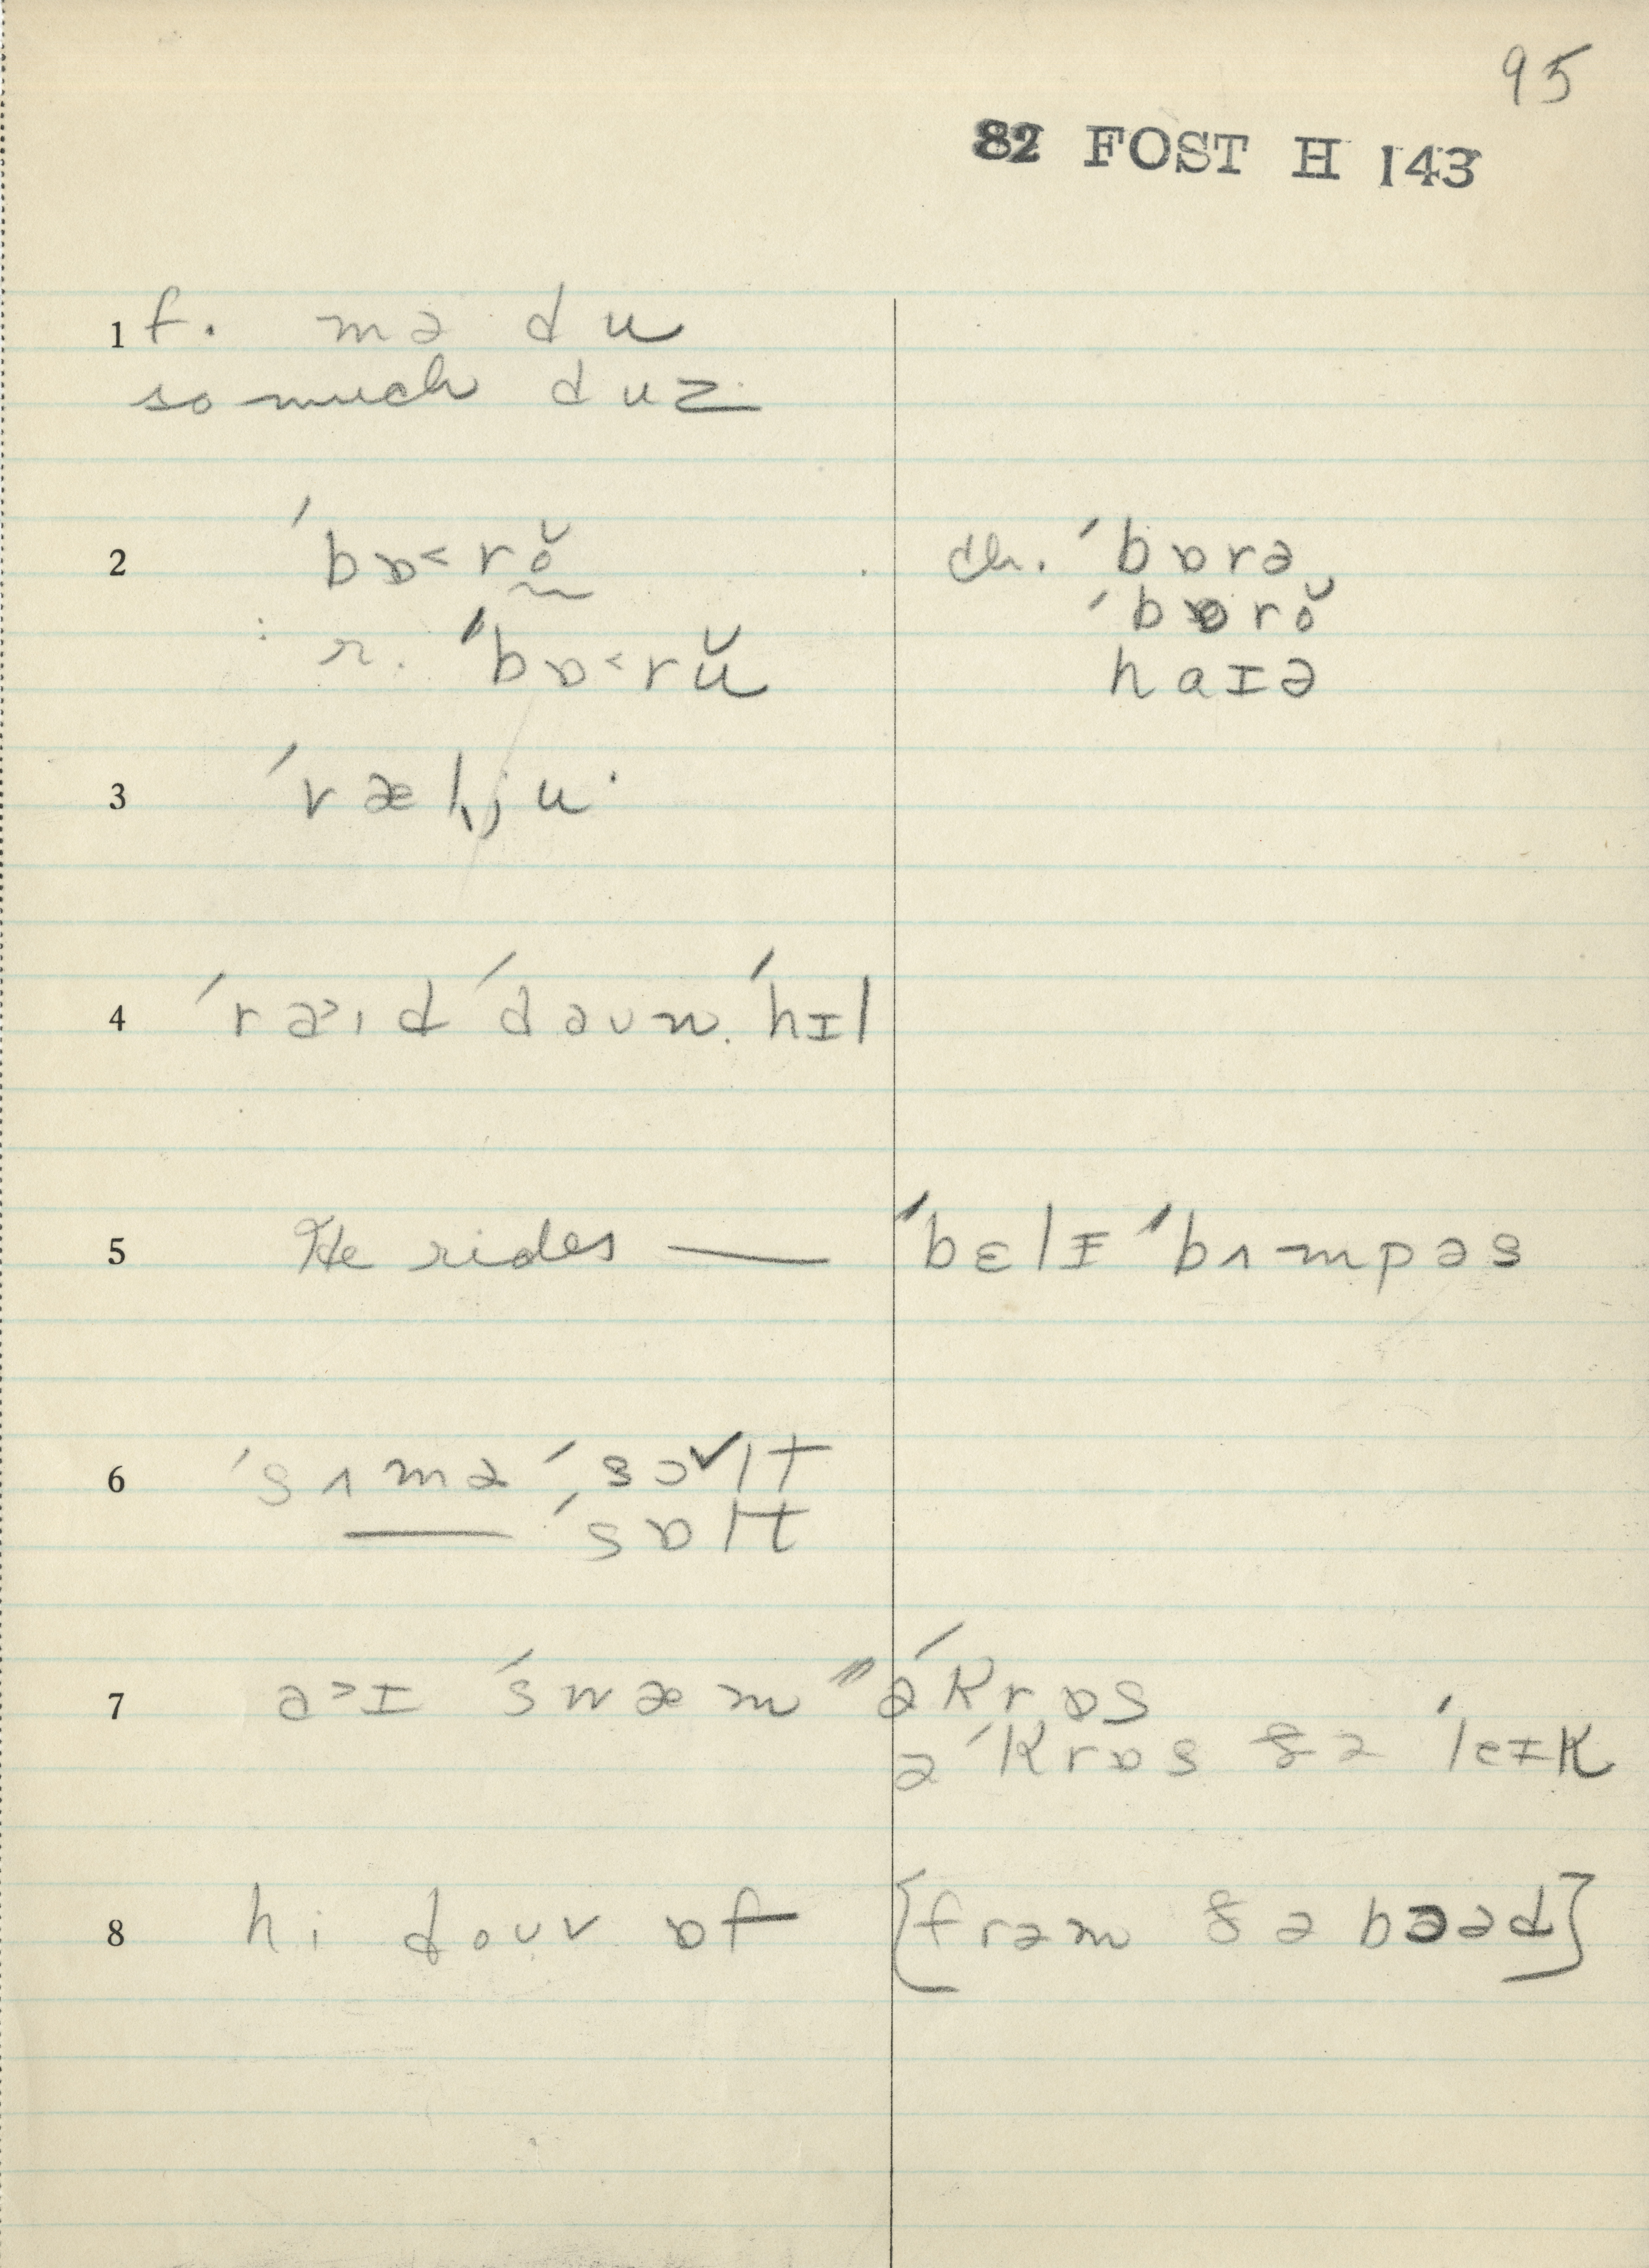 95
82 FOST H 143
1 f. mə du
so much duz
2 ˊbɒ˂rŏ̰ ch. ˊbɒrə
ˊbɒrŏ
: r. ˊbɒ˂rŭ haɪə
3 ˊvæljuˑ
4 ˊrə˃ɪd ˊdəʊn ˊhɪl
5 He rides — ˊbɛlɪ ˊbʌmpəs
6 ˊsʌmə ˊsɔ˅lt
— ˊsɒlt
7 ə˃ɪ ˊswæm ˝əˊkrɒs
əˊkrɒs ðə ˊleɪk
8 hi doʊv ɒf [frəm ðə bɔəd]